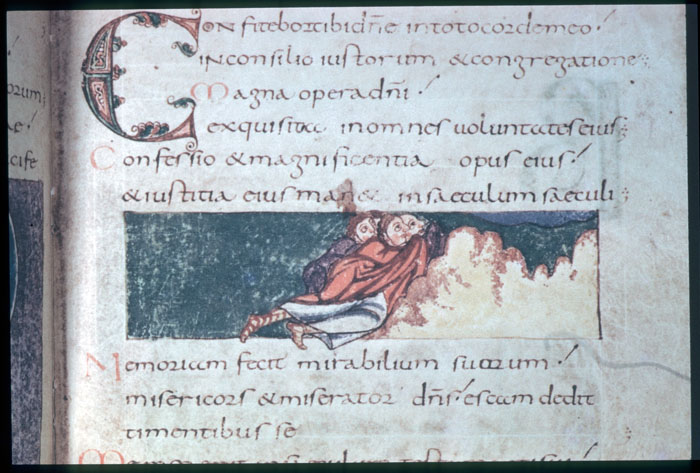 CONfitebor tibi dn̄e in toto corde meo·
IN consilio iustorum & congregatione:
Magna opera dn̄i·
exquisita in omnes voluntates eius:
Confessio & magnificentia opus eius·
& iustitia eius man& in saeculum saeculi:
Memoriam fecit mirabilium suorum·
misericors & miserator dn̄s· escam dedit
timentibus se